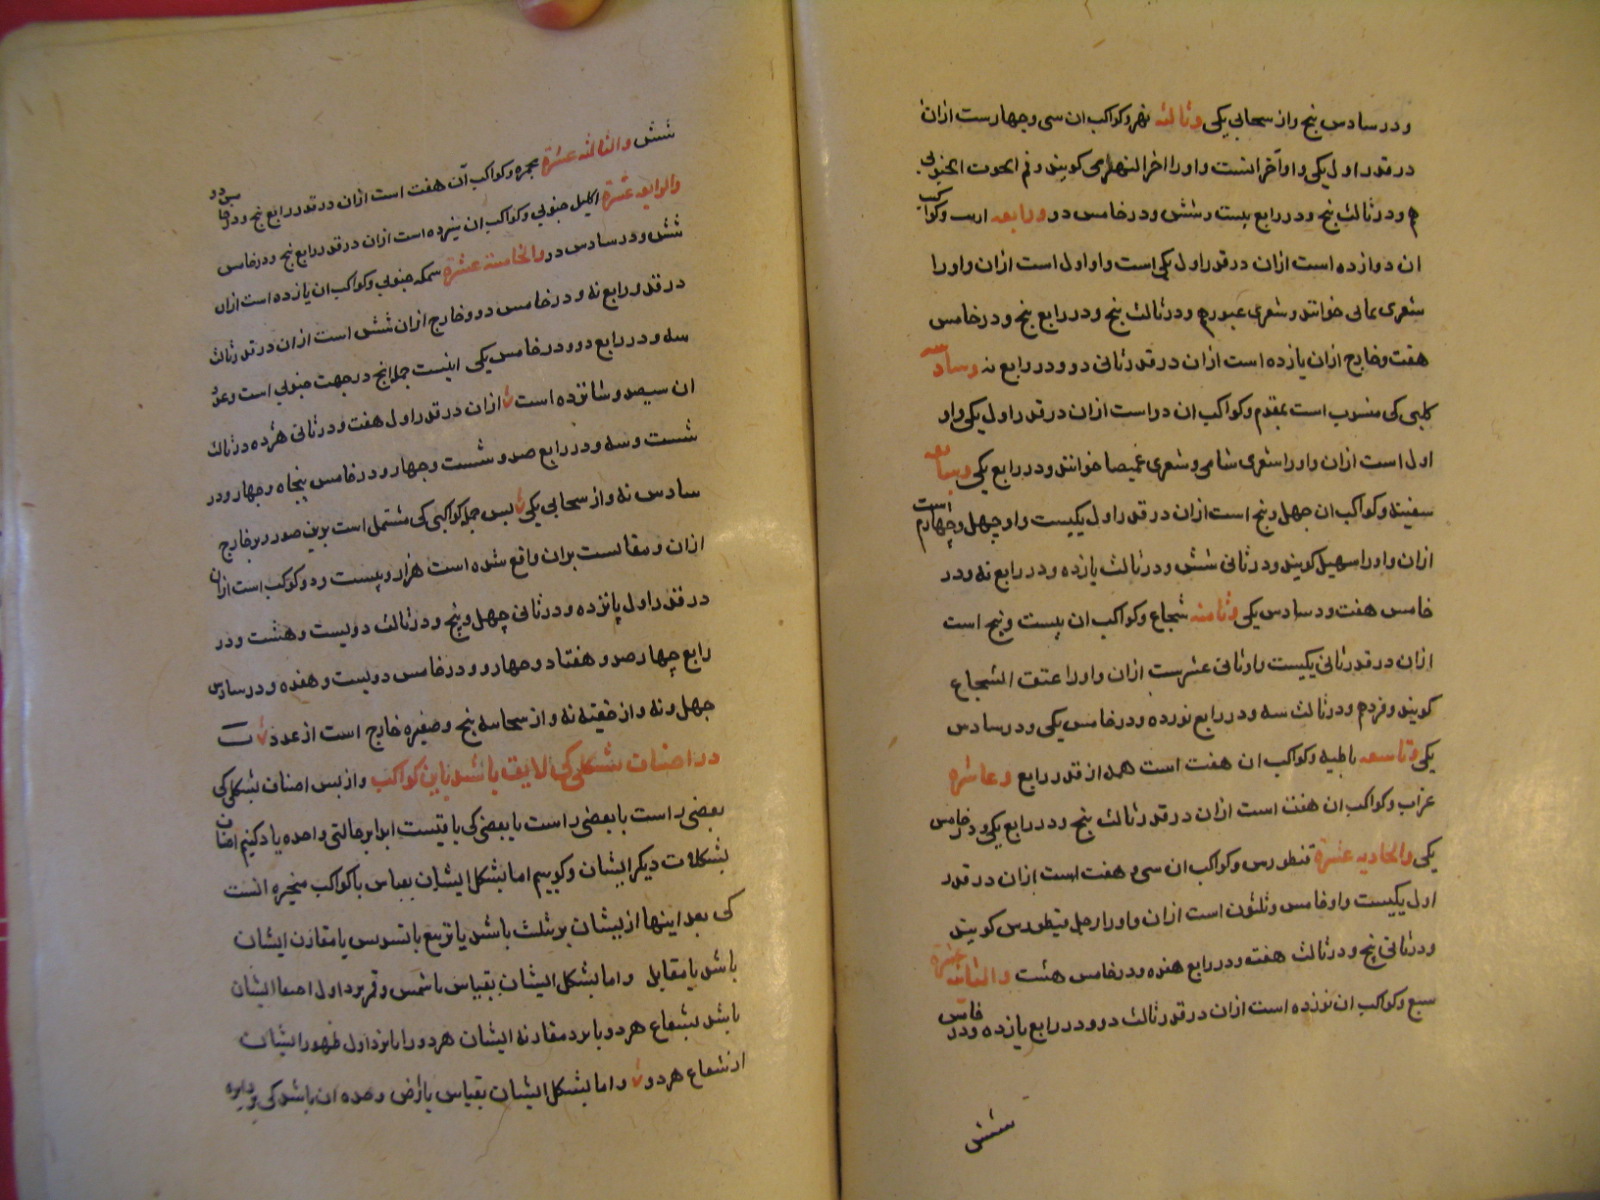 ودر سادس پنج واز سحابی یکی وثالثه نهر وکواکب ان سی وچهارست ازان
در قدر اول یکی واو آخر انست واورا اخر النهر می کویند وفم الحوت الجنوبی
هم ودر ثالث پنج ودر رابع بیست وشش ودر خامس دو ورابعه ارنب وکواکب
ان دوازده است ازان در قدر اول یکی است واو اول است ازان واورا
شعری یمانی خوانند وشعری عبور هم ودر ثالث پنج ودر رابع پنج ودر خامس
هفت وخارج ازان یازده است ازان در قدر ثانی دو ودر رابع نه وسادسه
کلبی کی منسوب است بمقدم وکواکب ان دو است ازان در قدر اول یکی واو
اول است ازان واورا شعری شامی وشعری غمیصا خوانند ودر رابع یکی وسابعه
سفینه وکواکب ان چهل وپنج است ازان در قدر اول یکیست واو چهل وچهارم است
ازان واورا سهیل کویند ودر ثانی شش ودر ثالث یازده ودر رابع نه ودر
خامس هفت ودر سادس یکی وثامنه شجاع وکواکب ان بیست وپنج است
ازان در قدر ثانی یکیست واو ثانی عشرست ازان واورا عنق الشجاع
کویند وفرد هم ودر ثالث سه ودر رابع نوزده ودر خامس یکی ودر سادس
یکی وتاسعه باطیه وکواکب ان هفت است همه از قدر رابع وعاشره
غراب وکواکب ان هفت است ازان در قدر ثالث پنج ودر رابع یکی ودر خامس
یکی والحادیه عشرة قنطورس وکواکب ان سی و هفت است ازان در قدر
اول یکیست واو خامس وثلثون است ازان واورا رجل قنطورس کویند
ودر ثانی پنج ودر ثالث هفته ودر رابع هفده ودر خامس هشت والثانیه عشرة
سبع وکواکب ان نوزده است ازان در قدر ثالث دو ودر رابع یازده ودر خامس
شش
شش والثالثه عشرة مجمره وکواکب آن هفت است ازان در قدر رابع پنج ودر خامس دو
والرابعه عشرة اکلیل جنوبی وکواکب ان سیزده است ازان در قدر رابع پنج ودر خامس
شش ودر سادس دو والخامسة عشرة سمکه جنوبی وکواکب ان یازده است ازان
در قدر رابع نه ودر خامس دو وخارج ازان شش است ازان در قدر ثالث
سه ودر رابع دو ودر خامس یکی اینست جمله انچ در جهت جنوبی است وعدد
ان سیصد وشانزده است ازان در قدر اول هفت ودر ثانی هژده در ثالث
شست وسه ودر رابع صد وشست وچهار ودر خامس پنجاه وچهار ودر
سادس نه واز سحابی یکی پس جمله کواکبی کی مشتمل است برین صور وبر خارج
ازان ومقالست بران واقع شده است هزار وبیست ودو کوکب است ازان
در قدر اول پانزده ودر ثانی چهل وپنج ودر ثالث دویست وهشت ودر
رابع چهار صد وهفتاد وچهار ودر خامس دویست وهفده ودر سادس
چهل ونه واز خفیه نه واز سحابیه پنج وضفیره خارج است از عدد
در اصناف تشکلی کی لایق باشد باین کواکب واز پس اصناف تشکلی کی
بعضی راست با بعضی راست یا بعضی کی باقیست ابدا بر حالتی واحده یاد کنیم اصناف
تشکلات دیکر ایشان وکوییم اما تشکل ایشان بقیاس با کواکب متحیره انست
کی بعد اینها از ایشان بر تثلیث باشد یا تربیع یا تسدیس یا مقارن ایشان
باشد یا مقابل واما تشکل ایشان بقیاس با شمس وقمر برد اول اختفا ایشان
باشد بشعاع هر دو یا برد مقارنه ایشان هر دو را یا برد اول ظهور ایشان
از شعاع هر دو واما تشکل ایشان بقیاس با ارض وحده ان باشد کی بر دایره